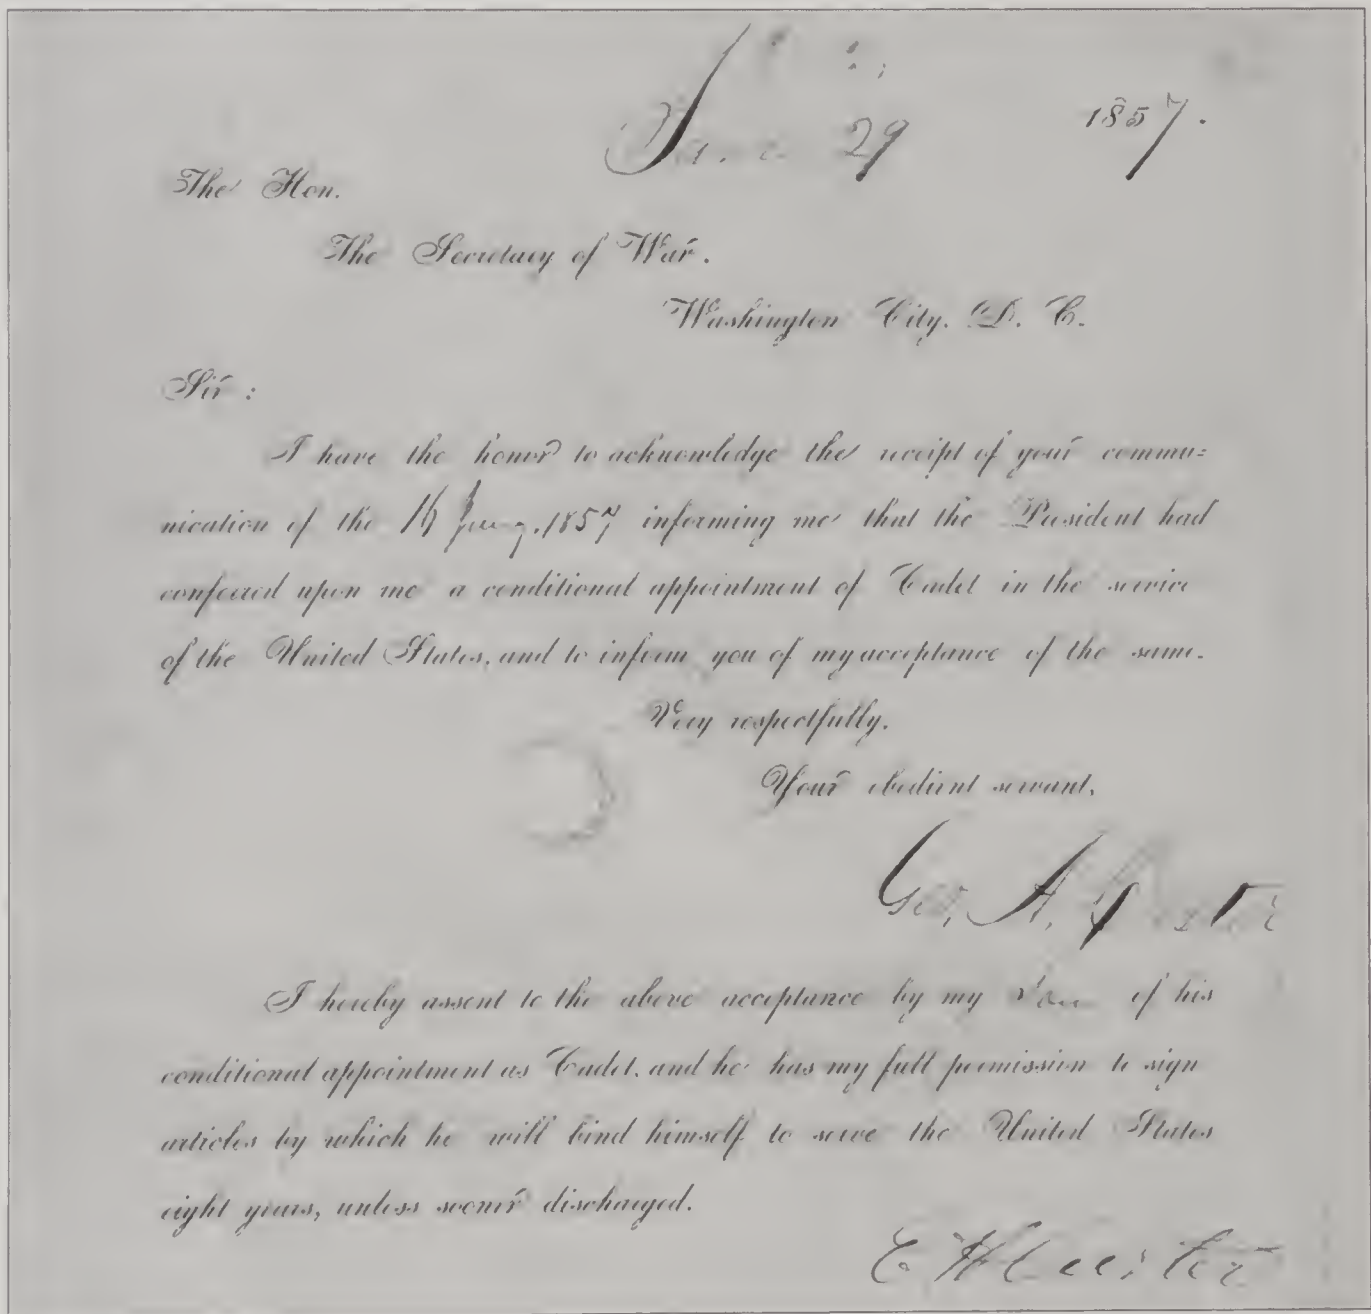 29 1857.
The Hon.
The Secretary of War.
Washington City. D. C.
Sir:
I have the honor to acknowledge the receipt of your commu=
nication of the 1857 informing me that the President had
conferred upon me a conditional appointment of Cadet in the service
of the United States, and to inform you of my acceptance of the same.
Very respectfully.
Your obedient servant,
Geo. A. Custer
I hereby assent to the above acceptance by my Son of his
conditional appointment as Cadet, and he has my full permission to sign
articles by which he will bind himself to serve the United States
eight years, unless sooner discharged.
E H Custer